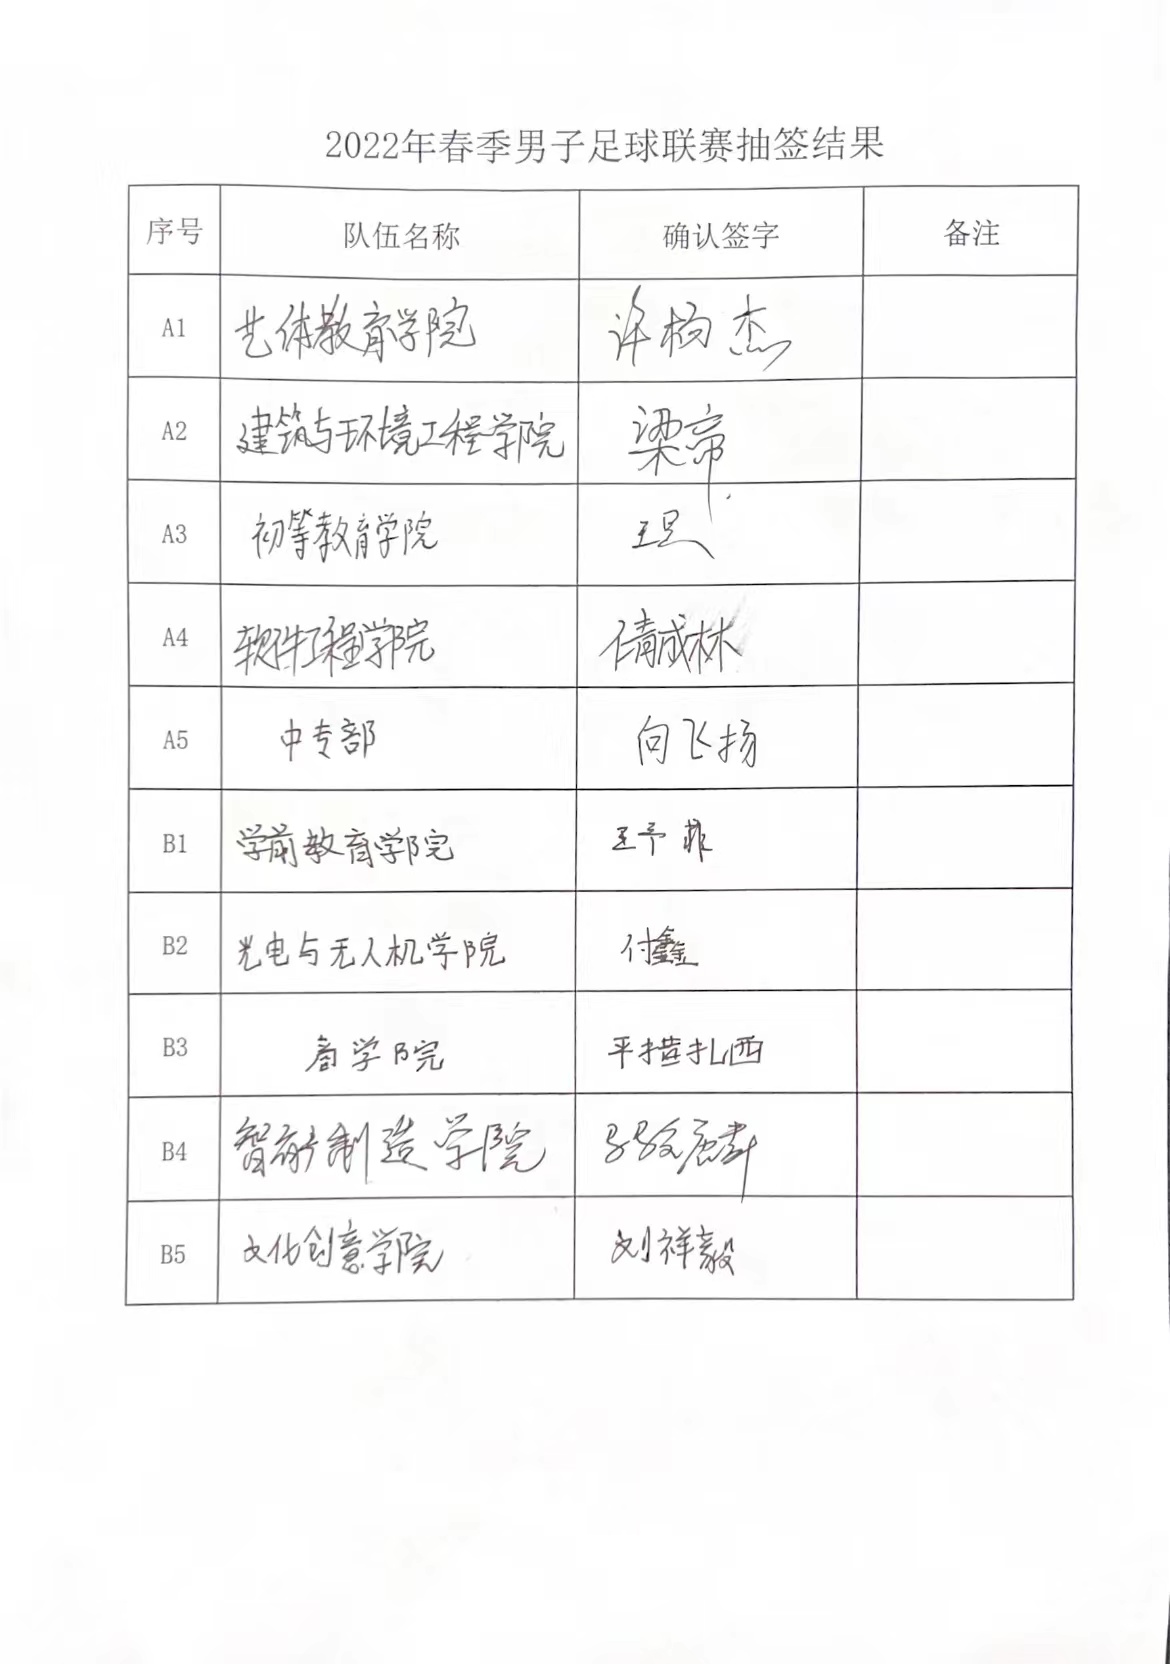 2022年春季男子足球联赛抽签结果
序号 队伍名称 确认签字 备注
A1 艺体教育学院 许杨杰
A2 建筑与环境工程学院 梁帝
A3 初等教育学院 王昱
A4 软件工程学院 倩成林
A5 中专部 向飞扬
B1 学前教育学院 王予菲
B2 光电与无人机学院 付鑫
B3 商学院 平措扎西
B4 智能制造学院
B5 文化创意学院 刘祥毅